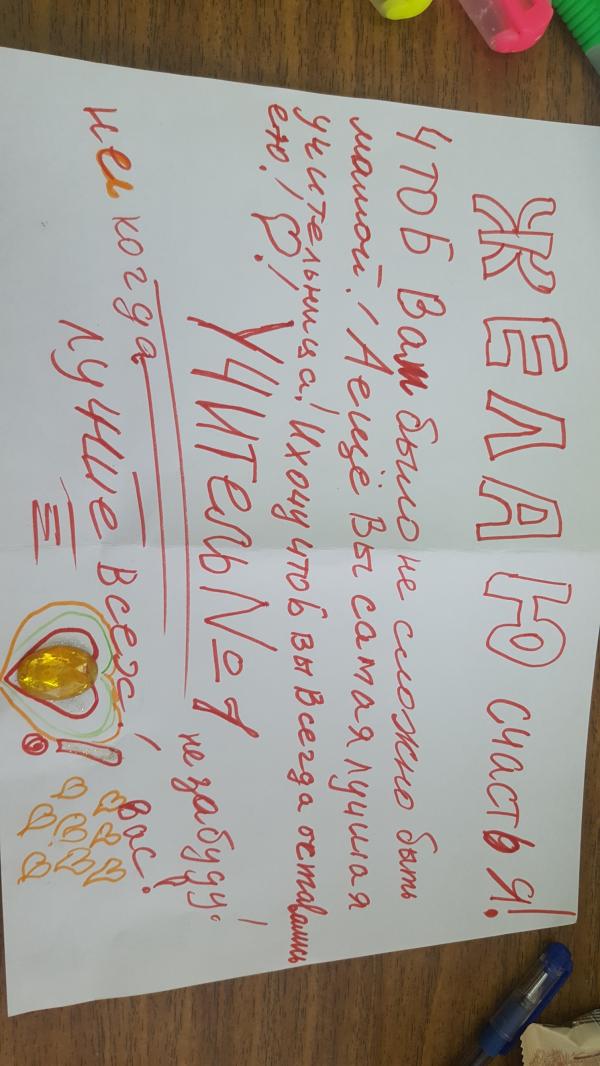 ЖЕЛАЮ счастья!
Чтоб Вам было не сложно быть
мамой! А ещё Вы самая лучшая
учительница! И хочу чтоб вы всегда оставались
ею!!
УЧИТЕЛЬ №1
не забуду!
ни когда
вас!
лучше всех!